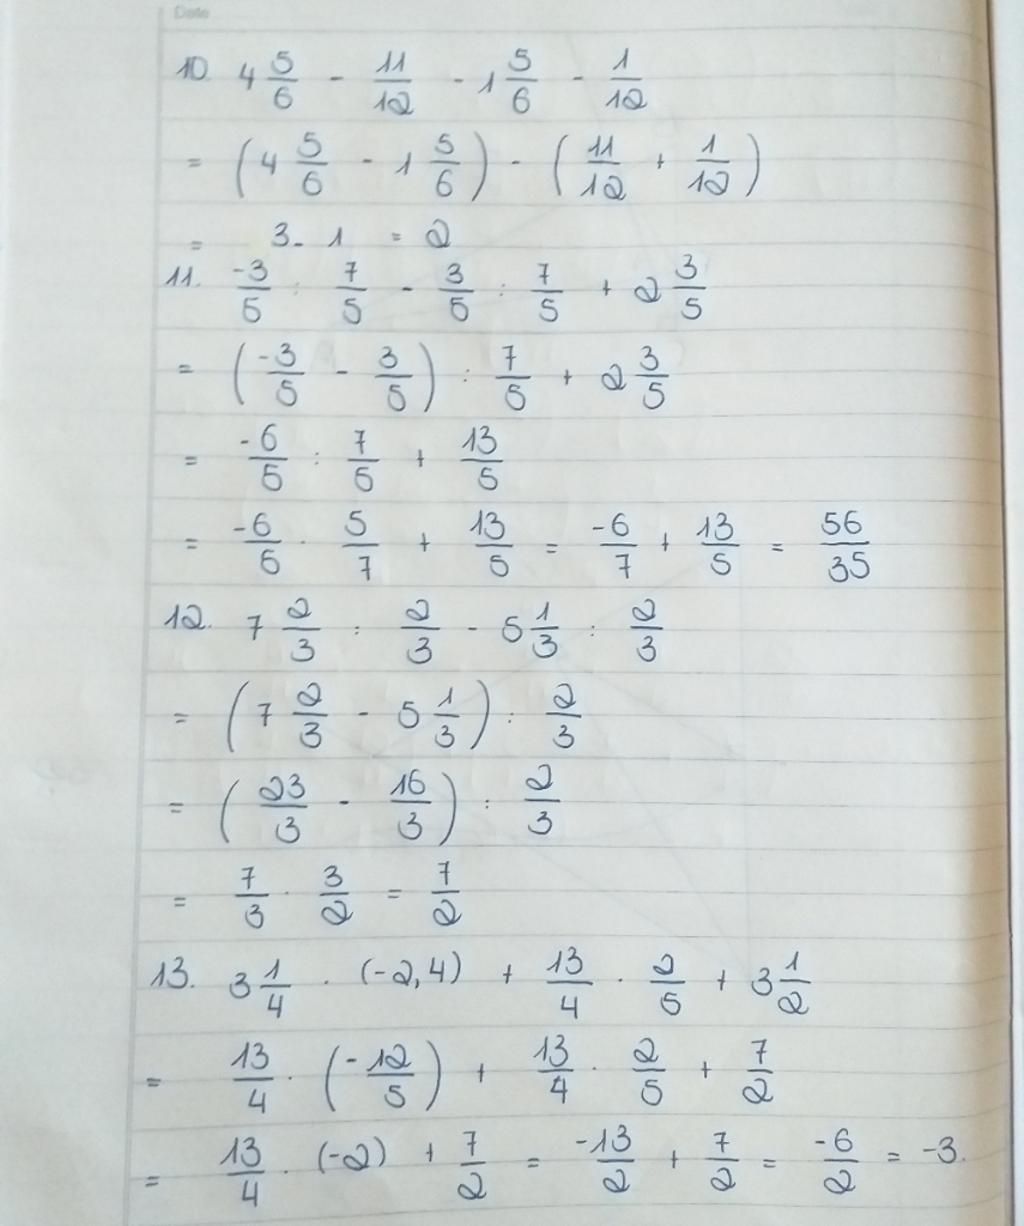 Date
10. 4 5/6 - 11/12 - 1 5/6 - 1/12
= (4 5/6 - 1 5/6) - (11/12 + 1/12)
= 3 - 1 = 2
11. -3/5 : 7/5 - 3/5 : 7/5 + 2 3/5
= (-3/5 - 3/5) : 7/5 + 2 3/5
= -6/5 : 7/5 + 13/5
= -6/5 . 5/7 + 13/5 = -6/7 + 13/5 = 56/35
12. 7 2/3 : 2/3 - 5 1/3 : 2/3
= (7 2/3 - 5 1/3) : 2/3
= (23/3 - 16/3) : 2/3
= 7/3 . 3/2 = 7/2
13. 3 1/4 . (-2,4) + 13/4 . 2/5 + 3 1/2
= 13/4 . (-12/5) + 13/4 . 2/5 + 7/2
= 13/4 . (-2) + 7/2 = -13/2 + 7/2 = -6/2 = -3.